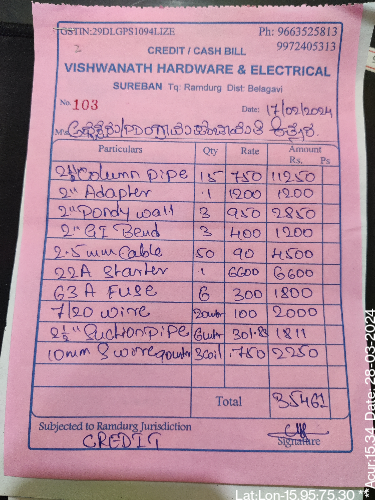 GSTIN:29DLGPS1094LIZE Ph: 9663525813
2 9972405313
CREDIT / CASH BILL
VISHWANATH HARDWARE & ELECTRICAL
SUREBAN Tq: Ramdurg Dist: Belagavi
No. 103 Date: 17/02/2024
M/s
Particulars Qty Rate Amount
Rs. Ps
2½" Column pipe 15 750 11250
2" Adapter 1 1200 1200
2" wall 3 950 2850
2" GI Bend 3 400 1200
2.5mm Cable 50 90 4500
22A Starter 1 6600 6600
63A Fuse 6 300 1800
7/20 wire 100 2000
2½" Suctionpipe 1811
10mm 3coil 750 2250
Total 35461
Subjected to Ramdurg Jurisdiction
CREDIT Signature
Lat:Lon-15.95-75.30 ** Acur:15.34 Date: 28-03-2024